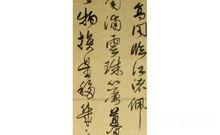 高閣臨江渚佩
南浦雲珠簾暮
物換星移幾